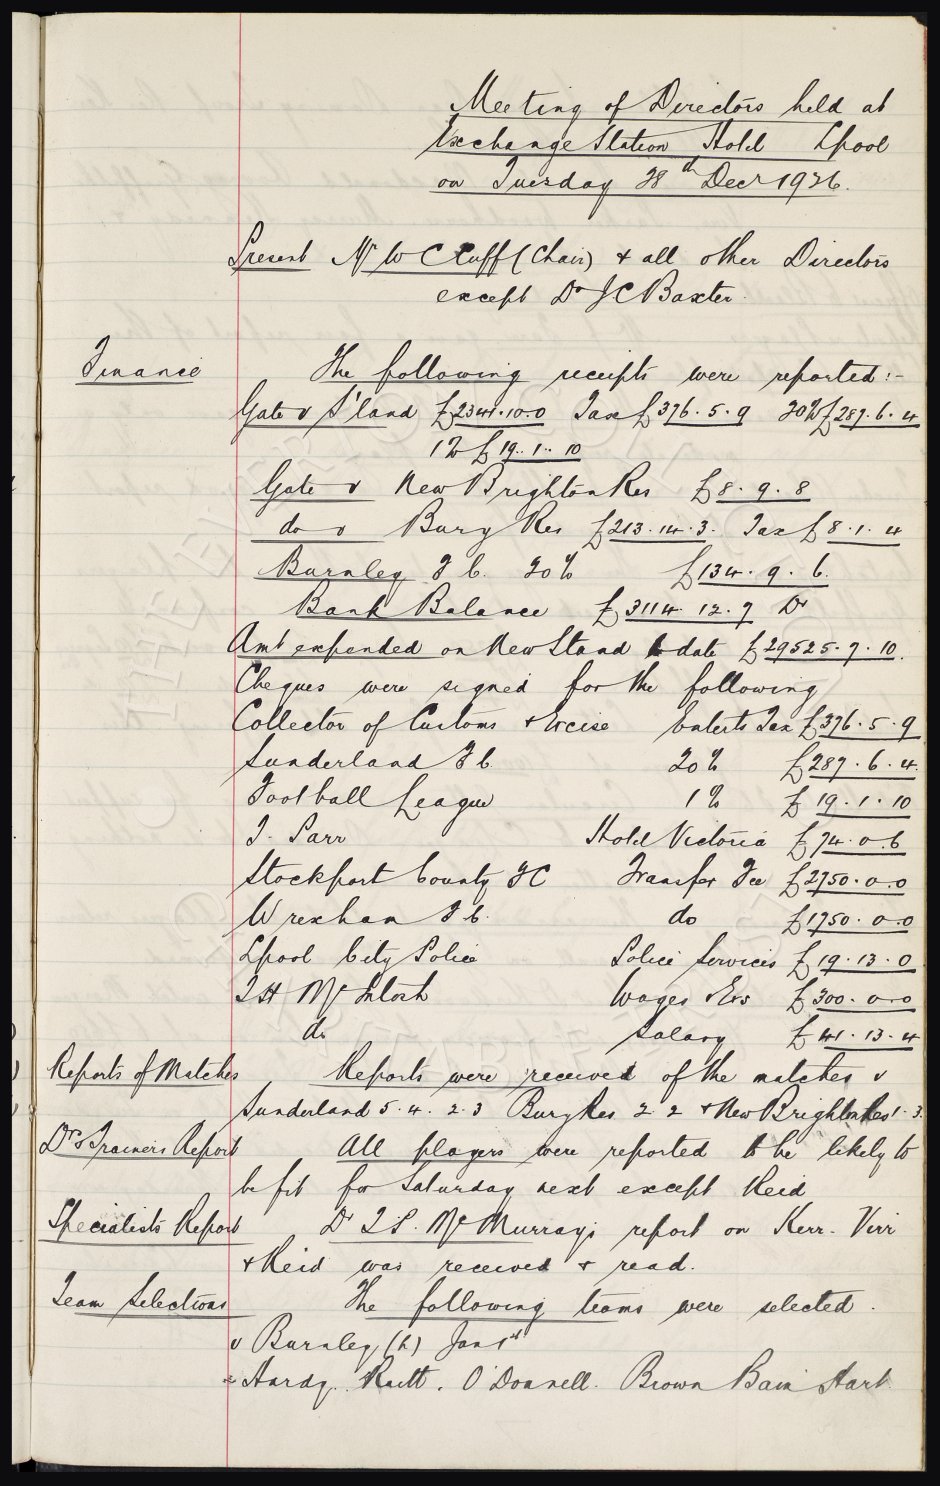 Meeting of Directors held at
Exchange Station Hotel Lpool
on Tuesday 28th Decr 1926.
Present Mr W C Cuff (Chair) & all other Directors
except Dr J C Baxter.
Finance The following receipts were reported:-
Gate v S'land £2341.10.0 Tax £376.5.9 20% £287.6.4
1% £19.1.10
Gate v New Brighton Res £8.9.8
do v Bury Res £213.14.3. Tax £8.1.4
Burnley F C. 20% £134.9.6.
Bank Balance £3114.12.7 Dr
Amt expended on New Stand to date £29525.7.10.
Cheques were signed for the following
Collector of Customs & Excise Enterts Tax £376.5.9
Sunderland F C. 20% £287.6.4.
Football League 1% £19.1.10
T. Parr Hotel Victoria £74.0.6
Stockport County F C Transfer Fee £2750.0.0
Wrexham F C. do £1750.0.0
Lpool City Police Police Services £19.13.0
T H McIntosh Wages & Exs £300.0.0
do Salary £41.13.4
Reports of Matches Reports were received of the matches v
Sunderland 5.4. 2.3 Bury Res 2.2 & New Brighton Res 1.3.
Drs & Trainers Report All players were reported to be likely to
be fit for Saturday next except Reid
Specialists Report Dr T S. McMurray's report on Kerr. Virr
& Reid was received & read.
Team Selections The following teams were selected.
v Burnley (h) Jan 1st
Hardy. Raitt. O'Donnell. Brown Bain Hart.